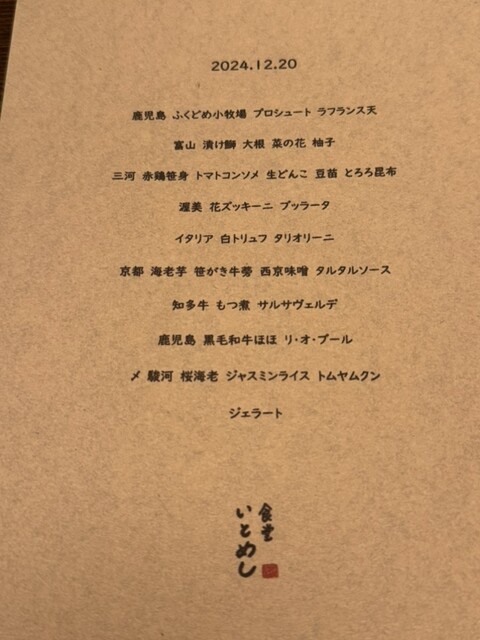 2024.12.20
鹿児島 ふくどめ小牧場 プロシュート ラフランス天
富山 漬け鰤 大根 菜の花 柚子
三河 赤鶏笹身 トマトコンソメ 生どんこ 豆苗 とろろ昆布
渥美 花ズッキーニ ブッラータ
イタリア 白トリュフ タリオリーニ
京都 海老芋 笹がき牛蒡 西京味噌 タルタルソース
知多牛 もつ煮 サルサヴェルデ
鹿児島 黒毛和牛ほほ リ・オ・ブール
〆 駿河 桜海老 ジャスミンライス トムヤムクン
ジェラート
食堂
いとめし